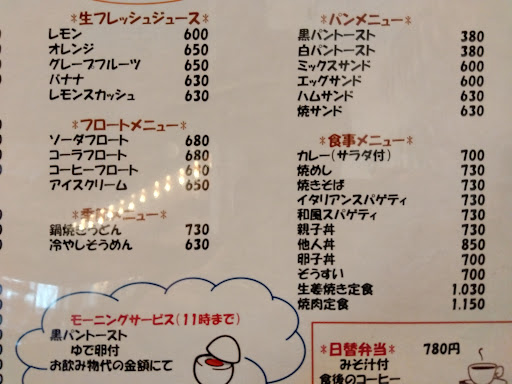 *生フレッシュジュース*
レモン 600
オレンジ 650
グレープフルーツ 650
バナナ 630
レモンスカッシュ 630
*フロートメニュー*
ソーダフロート 680
コーラフロート 680
コーヒーフロート
アイスクリーム 650
メニュー*
鍋焼きうどん 730
冷やしそうめん 630
モーニングサービス(11時まで)
黒パントースト
ゆで卵付
お飲み物代の金額にて
*パンメニュー*
黒パントースト 380
白パントースト 380
ミックスサンド 600
エッグサンド 600
ハムサンド 630
焼サンド 630
*食事メニュー*
カレー(サラダ付) 700
焼めし 730
焼きそば 730
イタリアンスパゲティ 730
和風スパゲティ 730
親子丼 730
他人丼 850
卵子丼 700
ぞうすい 700
生姜焼き定食 1.030
焼肉定食 1.150
*日替弁当* 780円
みそ汁付
食後のコーヒー